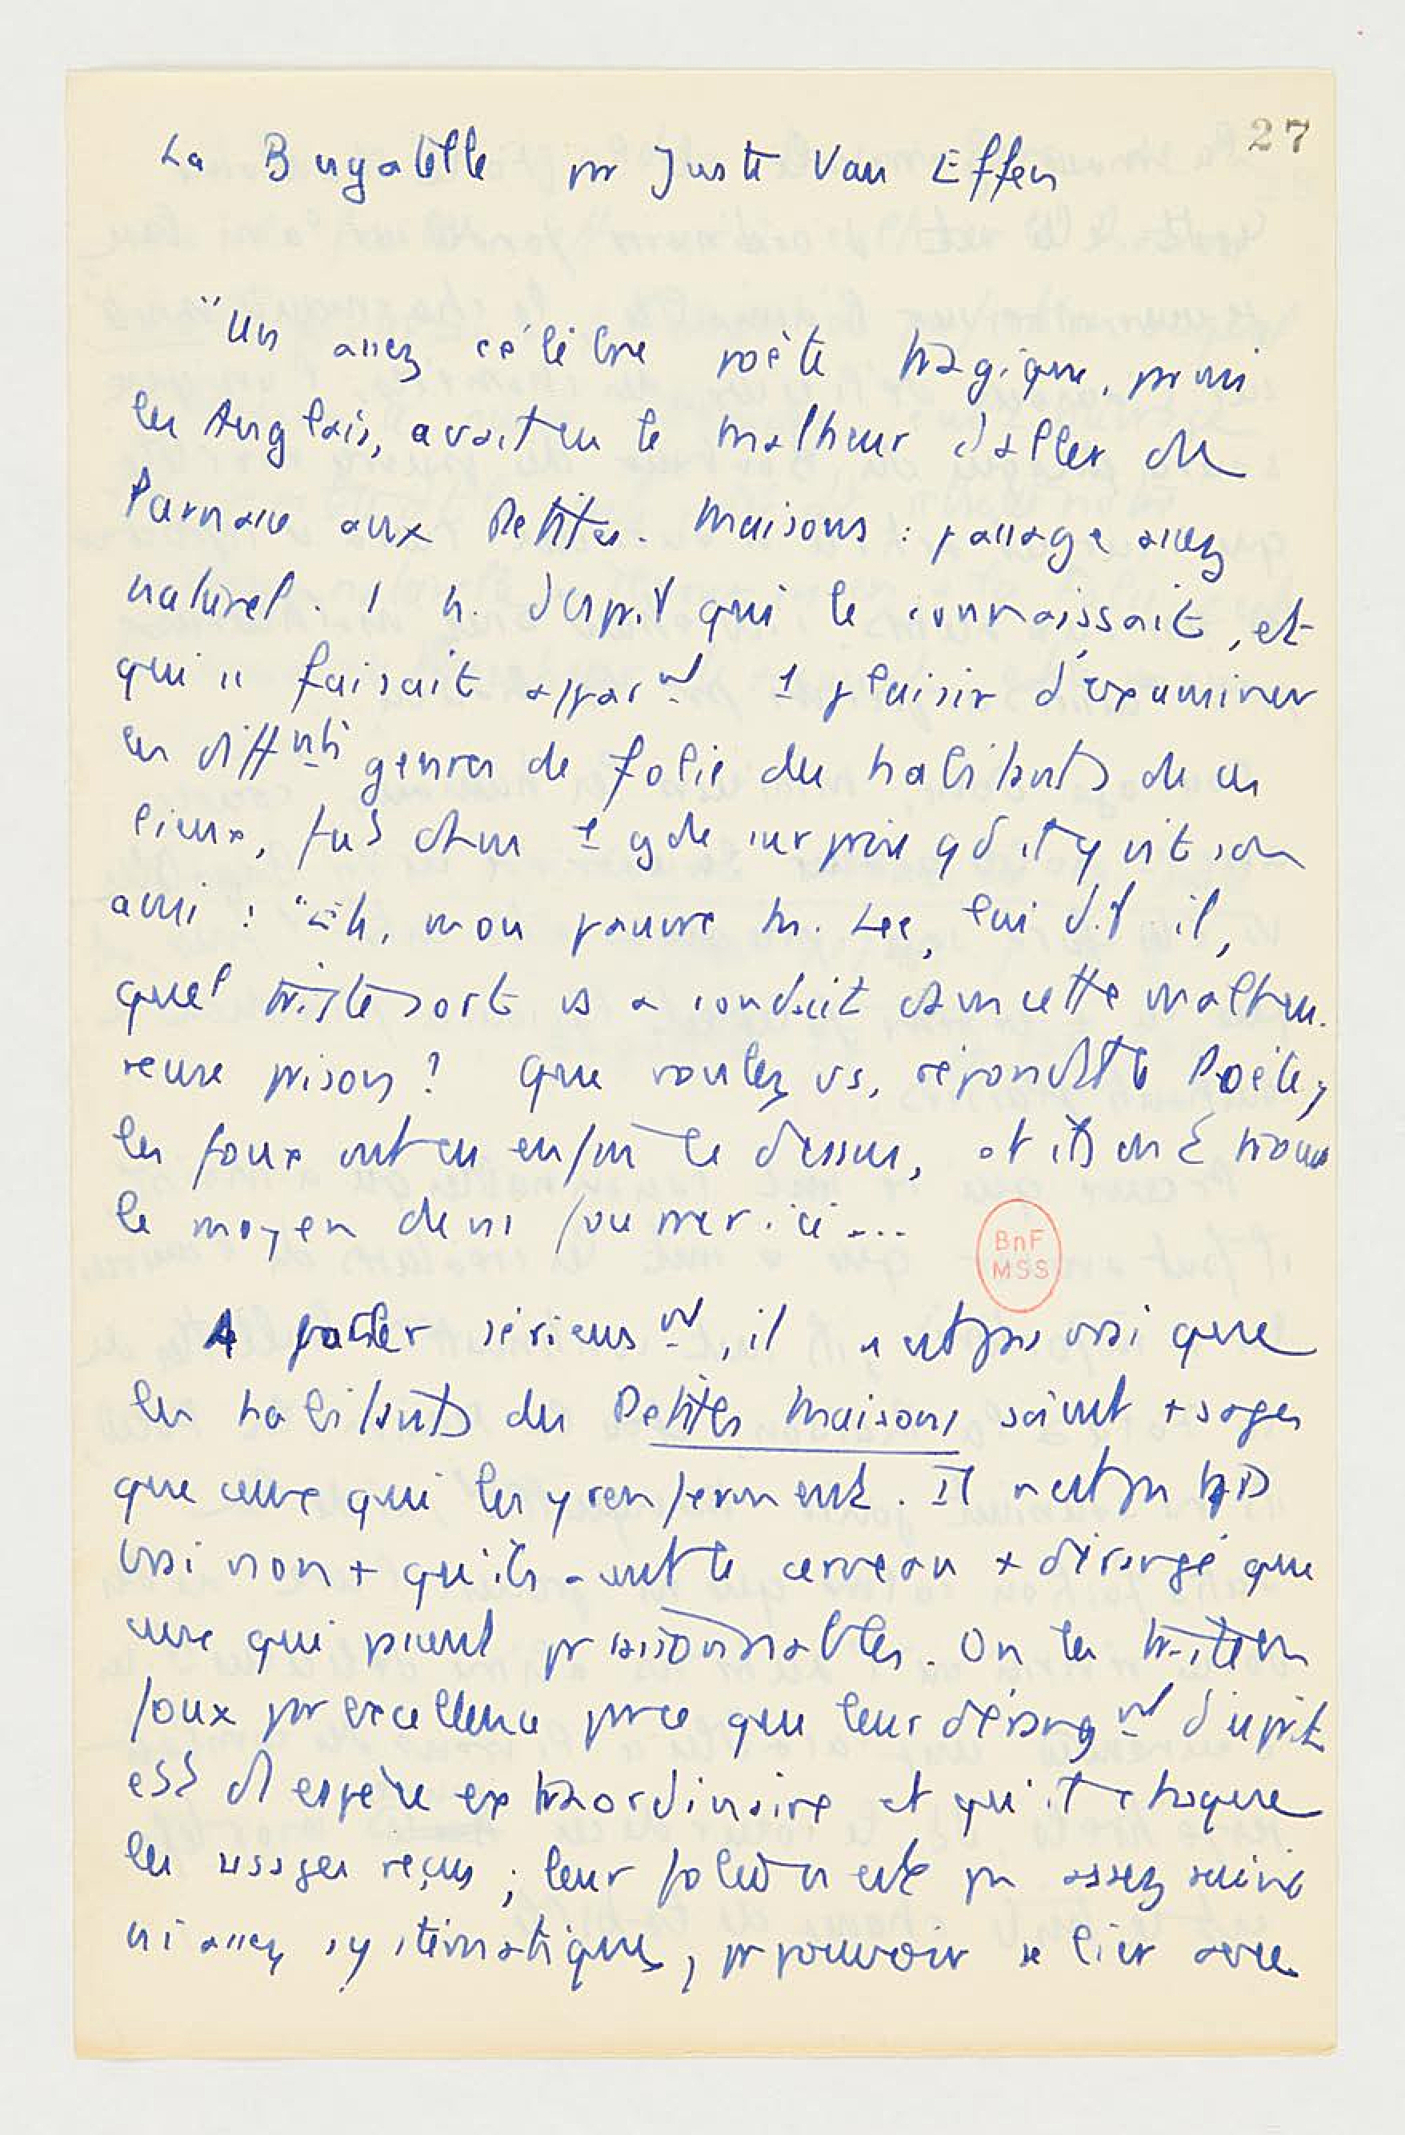 27
La Bagatelle par Juste Van Effen
"Un assez célèbre poète tragique, parmi
les Anglais, avait eu le malheur d'aller du
Parnasse aux Petites-Maisons : passage assez
naturel. 1 h. d'esprit qui le connaissait, et
qui se faisait appar^nt 1 plaisir d'examiner
les diff^nts genres de folie des habitants de ces
lieux, fut dans 1 gde surprise qd il y vit son
ami : "Eh, mon pauvre M. Lee, lui dit-il,
quel triste sort vs a conduit dans cette malheu-
reuse prison ? Que voulez vs, répondit le Poète,
les foux ont eu enfin le dessus, et ils ont trouvé
le moyen de ns fourrer ici...
A parler sérieus^nt, il n'est pas vrai que
les habitants des Petites Maisons soient + sages
que ceux qui les y renferment. Il n'est pas
vrai non + qu'ils aient le cerveau + dérangé que
ceux qui passent pr raisonnables. On les traite de
foux par excellence parce que leur dérang^nt d'esprit
est d'espèce extraordinaire et qu'il choque
les usages reçus ; leur folie n'est pas assez suivie
ni assez systématique, pr pouvoir se lier avec
BnF
MSS